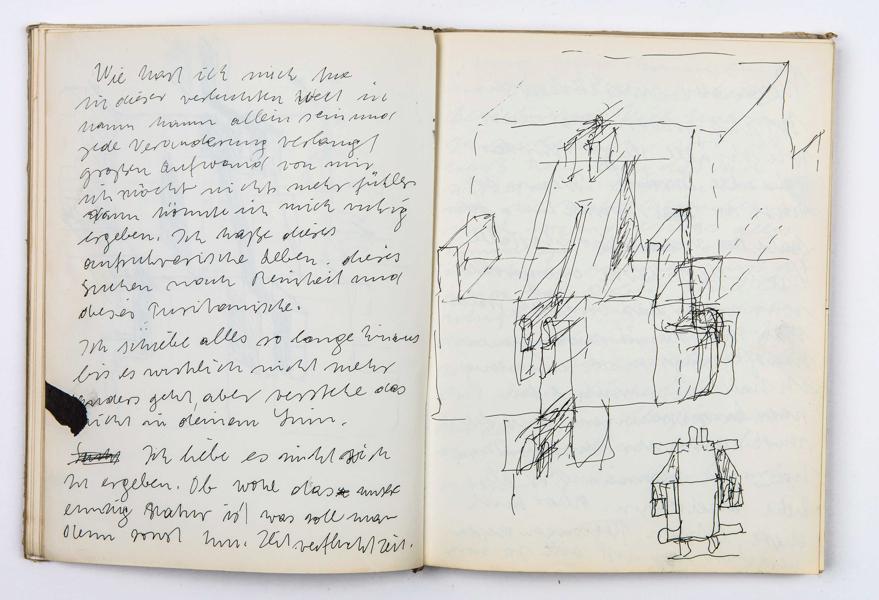 Wie hast ich mich
in dieser verfluchten Welt in
kann allein sein und
jede Veränderung verlangt
großen Aufwand von mir
ich möcht nichts mehr fühlen
dann könnte ich mich ruhig
ergeben. Ich haße dieses
Leben. dieses
Suchen nach Reinheit und
dieses Puritanische.
Ich schiebe alles so lange hinaus
bis es wirklich nicht mehr
anders geht, aber verstehe das
nicht in deinem Sinn.
Ich liebe es nicht sich
zu ergeben. Ob wohl das
ist was soll man
denn sonst tun. verflucht